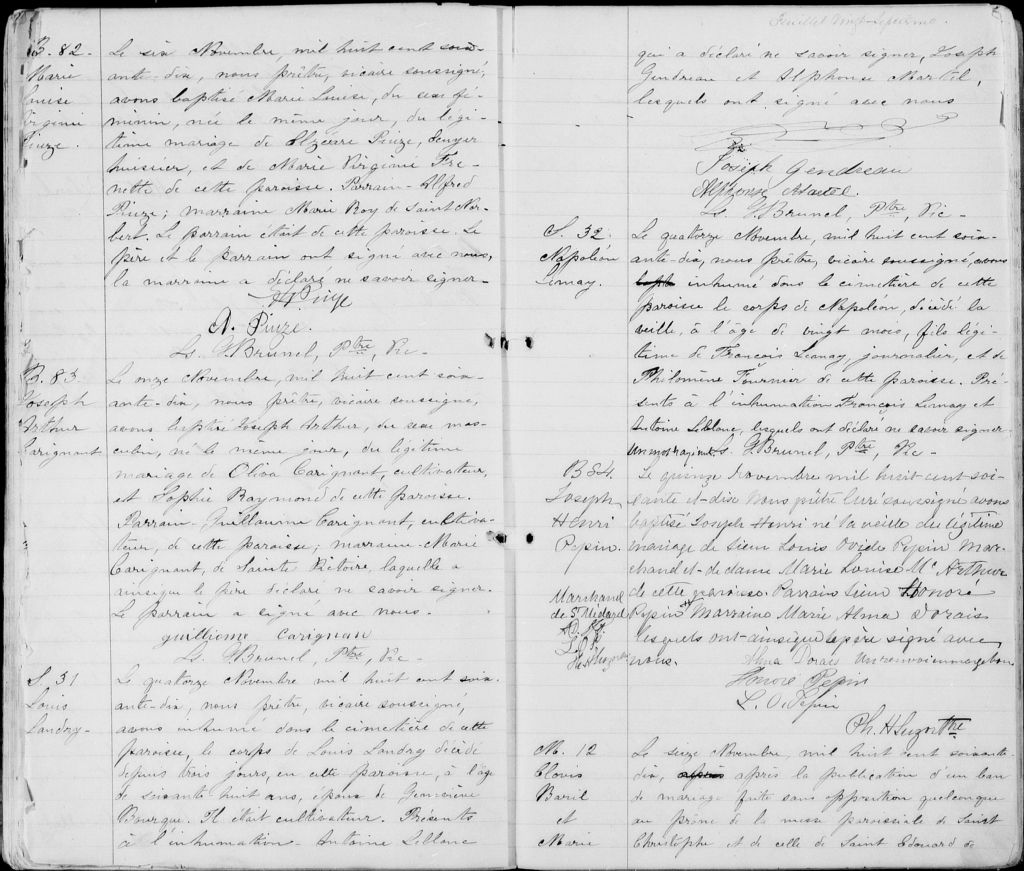 B. 82.
Marie
Louise
Virginie
Piuze.
Le six Novembre, mil huit cent soix-
ante-dix, nous prêtre, vicaire soussigné,
avons baptisé Marie Louise, du sexe fé-
minin, née le même jour, du légi-
time mariage de Elzéare Piuze, Ecuyer
huissier, et de Marie Virginie Fre-
nette de cette paroisse. Parrain - Alfred
Piuze; marraine Marie Roy de Saint Nor-
bert. Le parrain était de cette paroisse. Le
père et le parrain ont signé avec nous,
la marraine a déclaré ne savoir signer-
A. Piuze.
Ls. G. Brunel, Ptre, Vic -
B. 83.
Joseph
Arthur
Carignant
Le onze Novembre, mil huit cent soix-
ante-dix, nous prêtre, vicaire soussigné,
avons baptisé Joseph Arthur, du sexe mas-
culin, né le même jour, du légitime
mariage de Oliva Carignant, cultivateur,
et Sophie Raymond de cette paroisse.
Parrain - Guillaume Carignant, cultiva-
teur, de cette paroisse; marraine - Marie
Carignant, de Sainte Victoire, laquelle a
ainsique le père déclaré ne savoir signer.
Le parrain a signé avec nous.
guilliome Carignan
Ls. G. Brunel, Ptre, Vic -
S. 31
Louis
Landry-
Le quatorze Novembre, mil huit cent soix-
ante-dix, nous prêtre, vicaire soussigné,
avons inhumé dans le cimetière de cette
paroisse, le corps de Louis Landry décédé
depuis trois jours, en cette paroisse, à l'âge
de soixante huit ans, époux de Geneviève
Bourque. Il était cultivateur. Présents
à l'inhumation - Antoine Leblanc
Feuillet vingt-septième.
qui a déclaré ne savoir signer, Joseph
Gendreau et Alphonse Martel,
lesquels ont signé avec nous
Joseph Gendreau
Alphonse Martel.
Ls. G. Brunel, Ptre, Vic -
S. 32.
Napoléon
Lemay.
Le quatorze Novembre, mil huit cent soix-
ante-dix, nous prêtre, vicaire soussigné, avons
inhumé dans le cimetière de cette
paroisse le corps de Napoléon, décédé la
veille, à l'âge de vingt mois, fils légi-
time de François Lemay, journalier, et de
Philomène Fournier de cette paroisse. Pré-
sents à l'inhumation François Lemay et
Antoine Leblanc, lesquels ont déclaré ne savoir signer
Un mot rayé nul. Ls. G. Brunel, Ptre, Vic -
B 84.
Joseph
Henri
Pepin.
Le quinze Novembre mil huit cent soi-
xante et-dix Nous prêtre Curé soussigné avons
baptisé Joseph Henri né la veille du légitime
mariage de Sieur Louis Ovide Pepin Mar-
chand et de dame Marie Louise Mc Arthur
de cette paroisse. Parrain Sieur Honoré
Pepin Marraine Marie Alma Dorais
lesquels ont ainsique le père signé avec
nous.
Marchand
de St Médard
Alma Dorais Un renvoi en marge bon
Honoré Pepin
L. O. Pepin
Ph. H Suzor Ptre
M. 12
Clovis
Baril
et
Marie
Le seize Novembre, mil huit cent soixante-
dix, après la publication d'un ban
de mariage faite sans opposition quelconque
au prône de la messe paroissiale de Saint
Christophe et de celle de Saint Edouard de